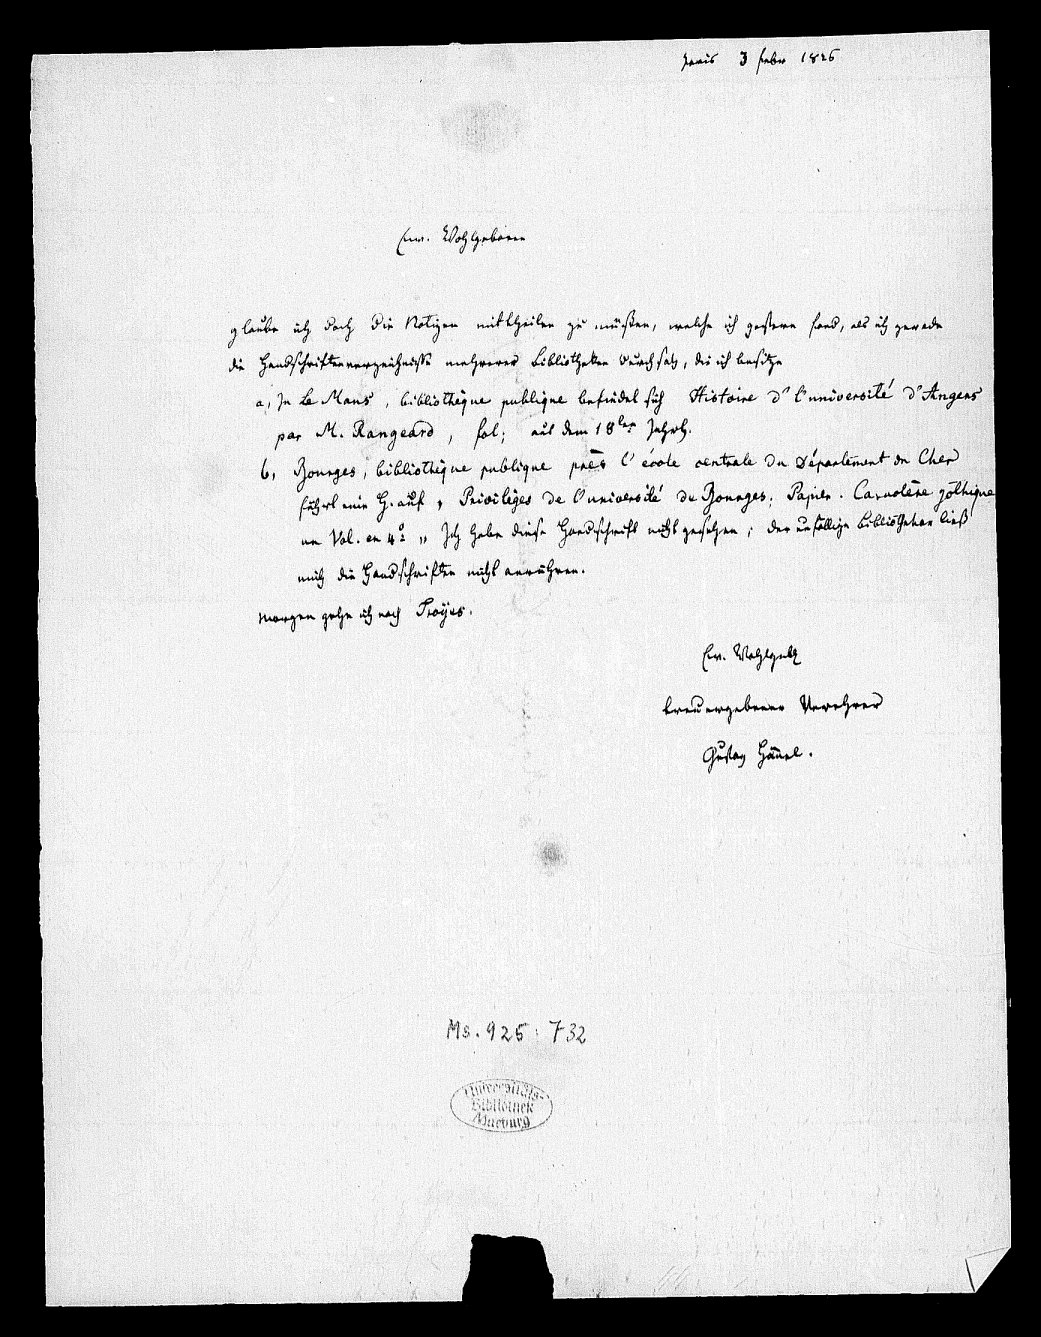 Paris 3 febr 1826
Ew. Wohlgeboren
glaube ich doch die Notizen mittheilen zu müßen, welche ich gestern fand, als ich gerade
die Handschriftenverzeichniße mehrerer Bibliotheken durchsah, die ich besitze
a, In Le Mans, bibliothèque publique befindet sich Histoire d' l'université d'Angers
par M. Rangeard, fol; aus dem 18ten Jahrh.
b, Bourges, bibliothèque publique près l'école centrale du Département du Cher
führt eine H. auf „ Privilèges de l'université de Bourges; Papier. Caractère gothique
un Vol. en 4º „ Ich habe diese Handschrift nicht gesehen; der unfällige Bibliothekar ließ
mich die Handschriften nicht anrühren.
Morgen gehe ich nach Troyes.
Ew. Wohlgeb
treuergebener Verehrer
Gustav Hänel.
Ms. 925: 732
Universitäts-
Bibliothek
Marburg